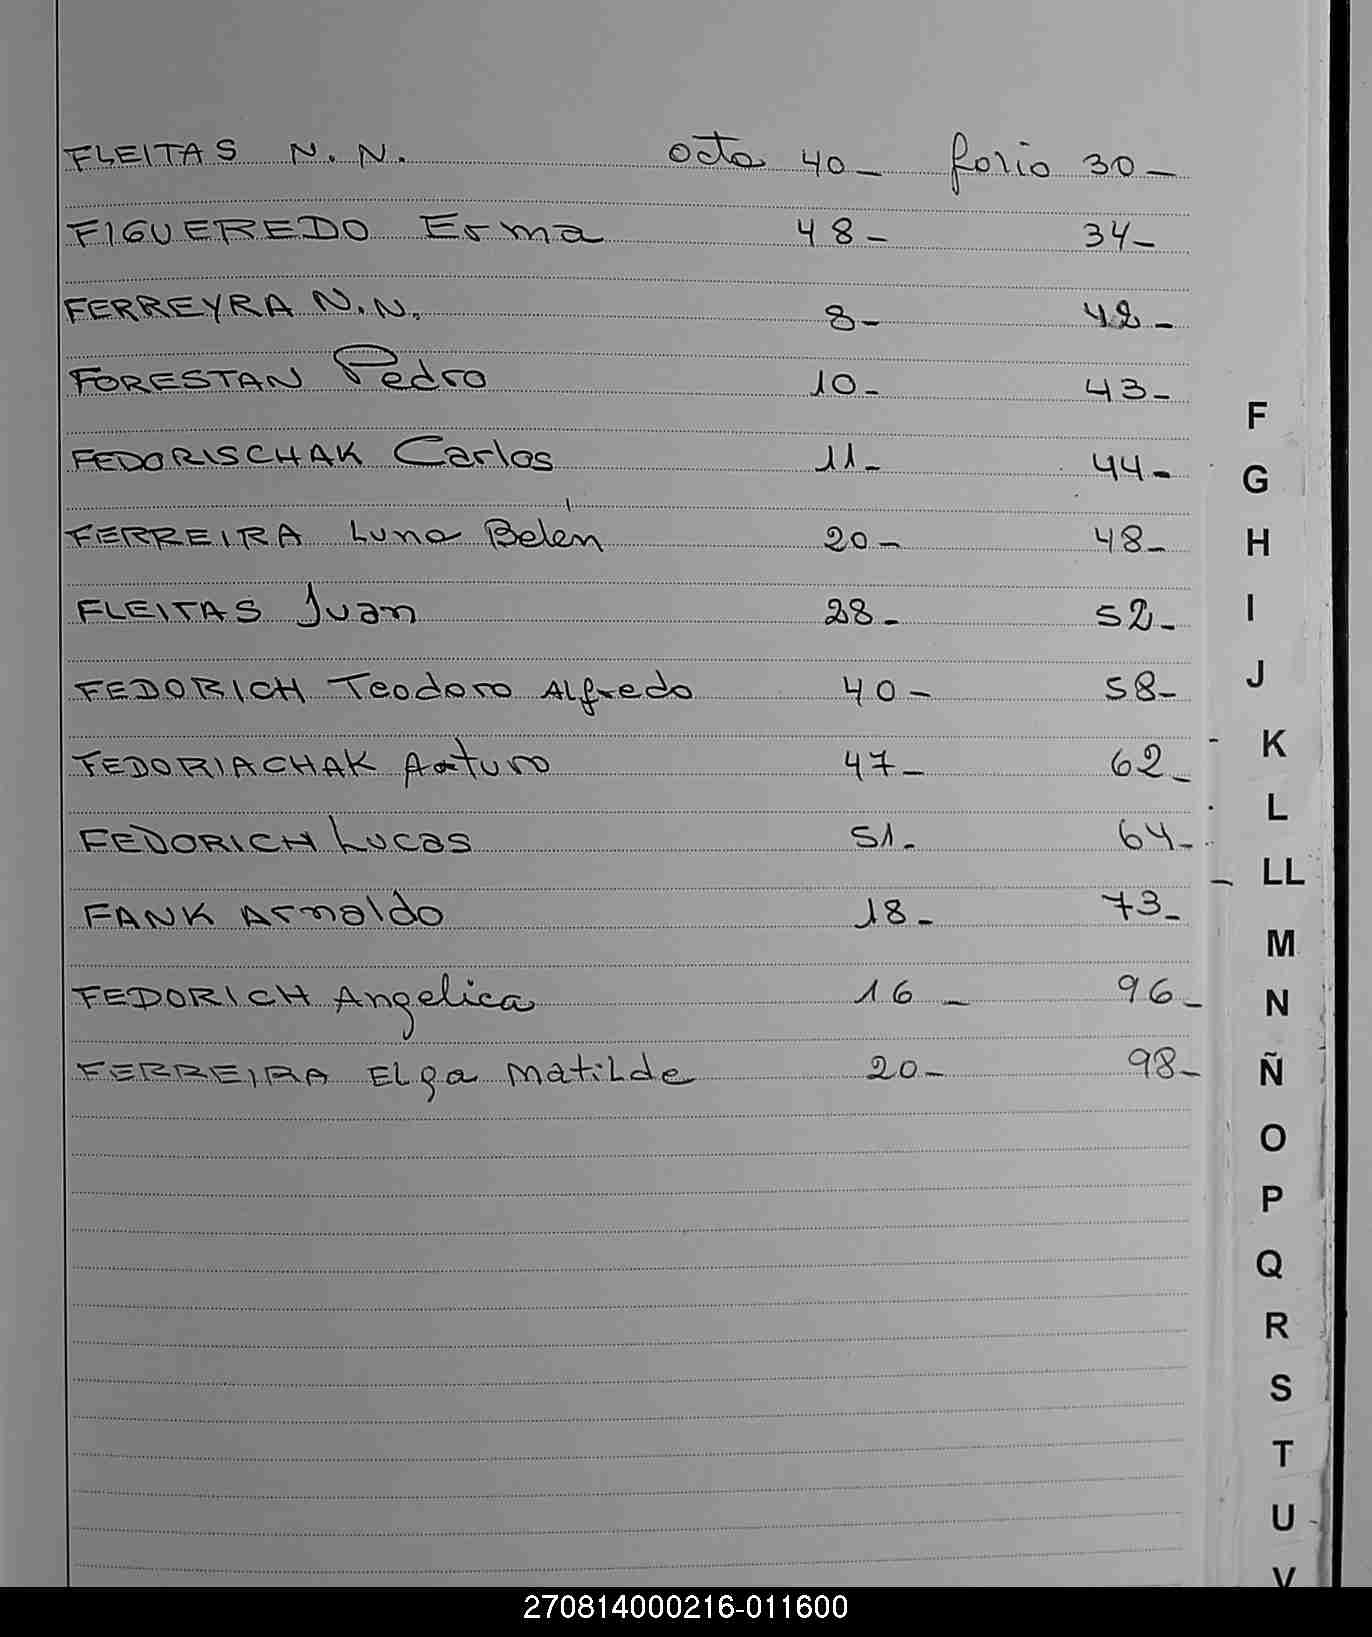 FLEITAS N.N. acta 40- folio 30-
FIGUEREDO Erma 48- 34-
FERREYRA N.N. 8- 42-
FORESTAN Pedro 10- 43-
FEDORISCHAK Carlos 11- 44-
FERREIRA Luna Belén 20- 48-
FLEITAS Juan 28- 52-
FEDORICH Teodoro Alfredo 40- 58-
FEDORIACHAK Arturo 47- 62-
FEDORICH Lucas 51- 64-
FANK Arnaldo 18- 73-
FEDORICH Angelica 16- 96-
FERREIRA Elga Matilde 20- 98-
F
G
H
I
J
K
L
LL
M
N
Ñ
O
P
Q
R
S
T
U
V
270814000216-011600